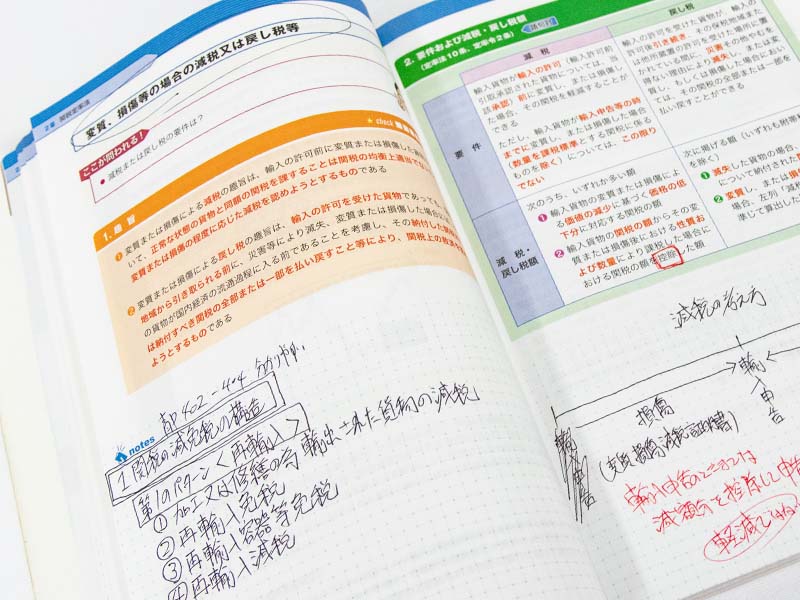 2章 関税定率法
変質、損傷等の場合の減税又は戻し税等
ここが問われる!
● 減税または戻し税の要件は?
★ check
1. 趣旨
❶ 変質または損傷による減税の趣旨は、輸入の許可前に変質または損傷した
いて、正常な状態の貨物と同額の関税を課することは関税の均衡上適当で
変質または損傷の程度に応じた減税を認めようとするものである
❷ 変質または損傷による戻し税の趣旨は、輸入の許可を受けた貨物であっても、
地域から引き取られる前に、災害等により滅失、変質または損傷した場合に
の貨物が国内経済の流通過程に入る前であることを考慮し、その納付した
は納付すべき関税の全部または一部を払い戻すこと等により、関税上の
ようとするものである
notes
1 関税の減免税の構造
第1のパターン<再輸入>
① 加工又は修繕の為輸出された貨物の減税
② 再輸入免税
③ 再輸入容器等免税
④ 再輸入減税
2. 要件および減税・戻し税額
(定率法10条、定率令2条)
語句列
減税
戻し税
要件
輸入貨物が輸入の許可(輸入許可前
引取承認された貨物については、当
該承認)前に変質し、または損傷し
た場合、その関税を軽減することが
できる
ただし、輸入貨物が輸入申告等の時
までに変質し、または損傷した場合
(数量を課税標準とする関税に係る
ものを除く)については、この限り
でない
輸入の許可を受けた貨物が、輸入の
許可後引き続き、その保税地域また
は他所蔵置の許可を受けた場所に置
かれている間に、災害その他やむを
得ない理由により滅失し、または変
質し、もしくは損傷した場合におい
ては、その関税の全部または一部を
払い戻すことができる
減税・
戻し税額
次のうち、いずれか多い額
❶ 輸入貨物の変質または損傷によ
る価値の減少に基づく価格の低
下分に対応する関税の額
❷ 輸入貨物の関税の額からその変
質または損傷後における性質お
よび数量により課税した場合に
おける関税の額を控除した額
次に掲げる額(いずれも附帯
を除く)
❶ 滅失した貨物の場合、
について納付された
❷ 変質し、または損傷
場合、左列「減税
準じて算出した
減税の考え方
輸入
申告
損傷
輸入申告のときまでは
減額分を控除して申告
軽減